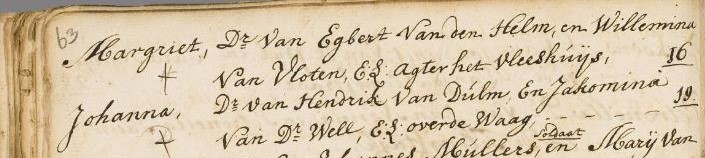 63
Margriet, Dr Van Egbert Van den Helm, en Willemina
Van Vloten, E§: agter het Vleeshuijs, 16
Johanna, Dr van Hendrik Van Dúlm, En Jakomina
Van Dr Well, E§: overde Waag, 19.
Soldaat
Johannes Múllers, en Marij Van